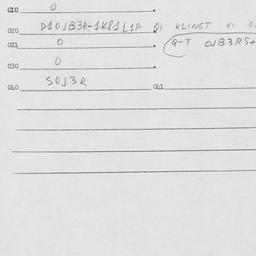 010 0
020 D10JB3R-1KP1L1R QI KLINGT VI
021 0 Q-T OJB3RS+
030 0
040 SOJ3R 041